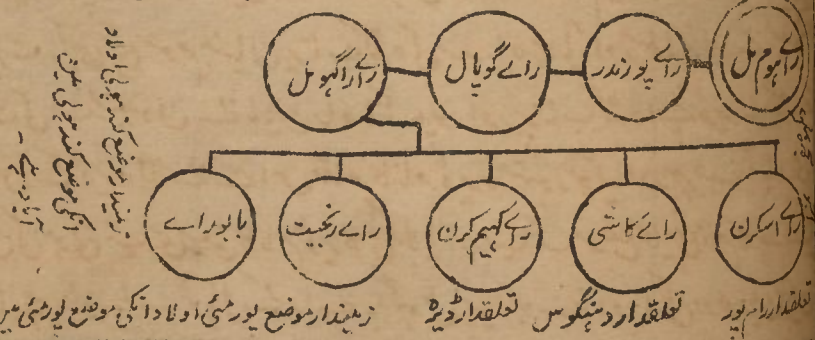 رائے ہوم مل
رائے پورندر
رائے گوپال
رائے راگہو مل
رائے اسکرن
رائے کاشی
رائے کہیم کرن
رائے رنجیت
بابو رائے
تعلقدار رام پور
تعلقدار دہنگوس
تعلقدار ڈیرہ
زمیندار موضع پورمئی اولاد انکی موضع پورمئی میں
زمیندار موضع گندہوئی اولاد
انکی موضع گندہوئی میں
آباد ہے -